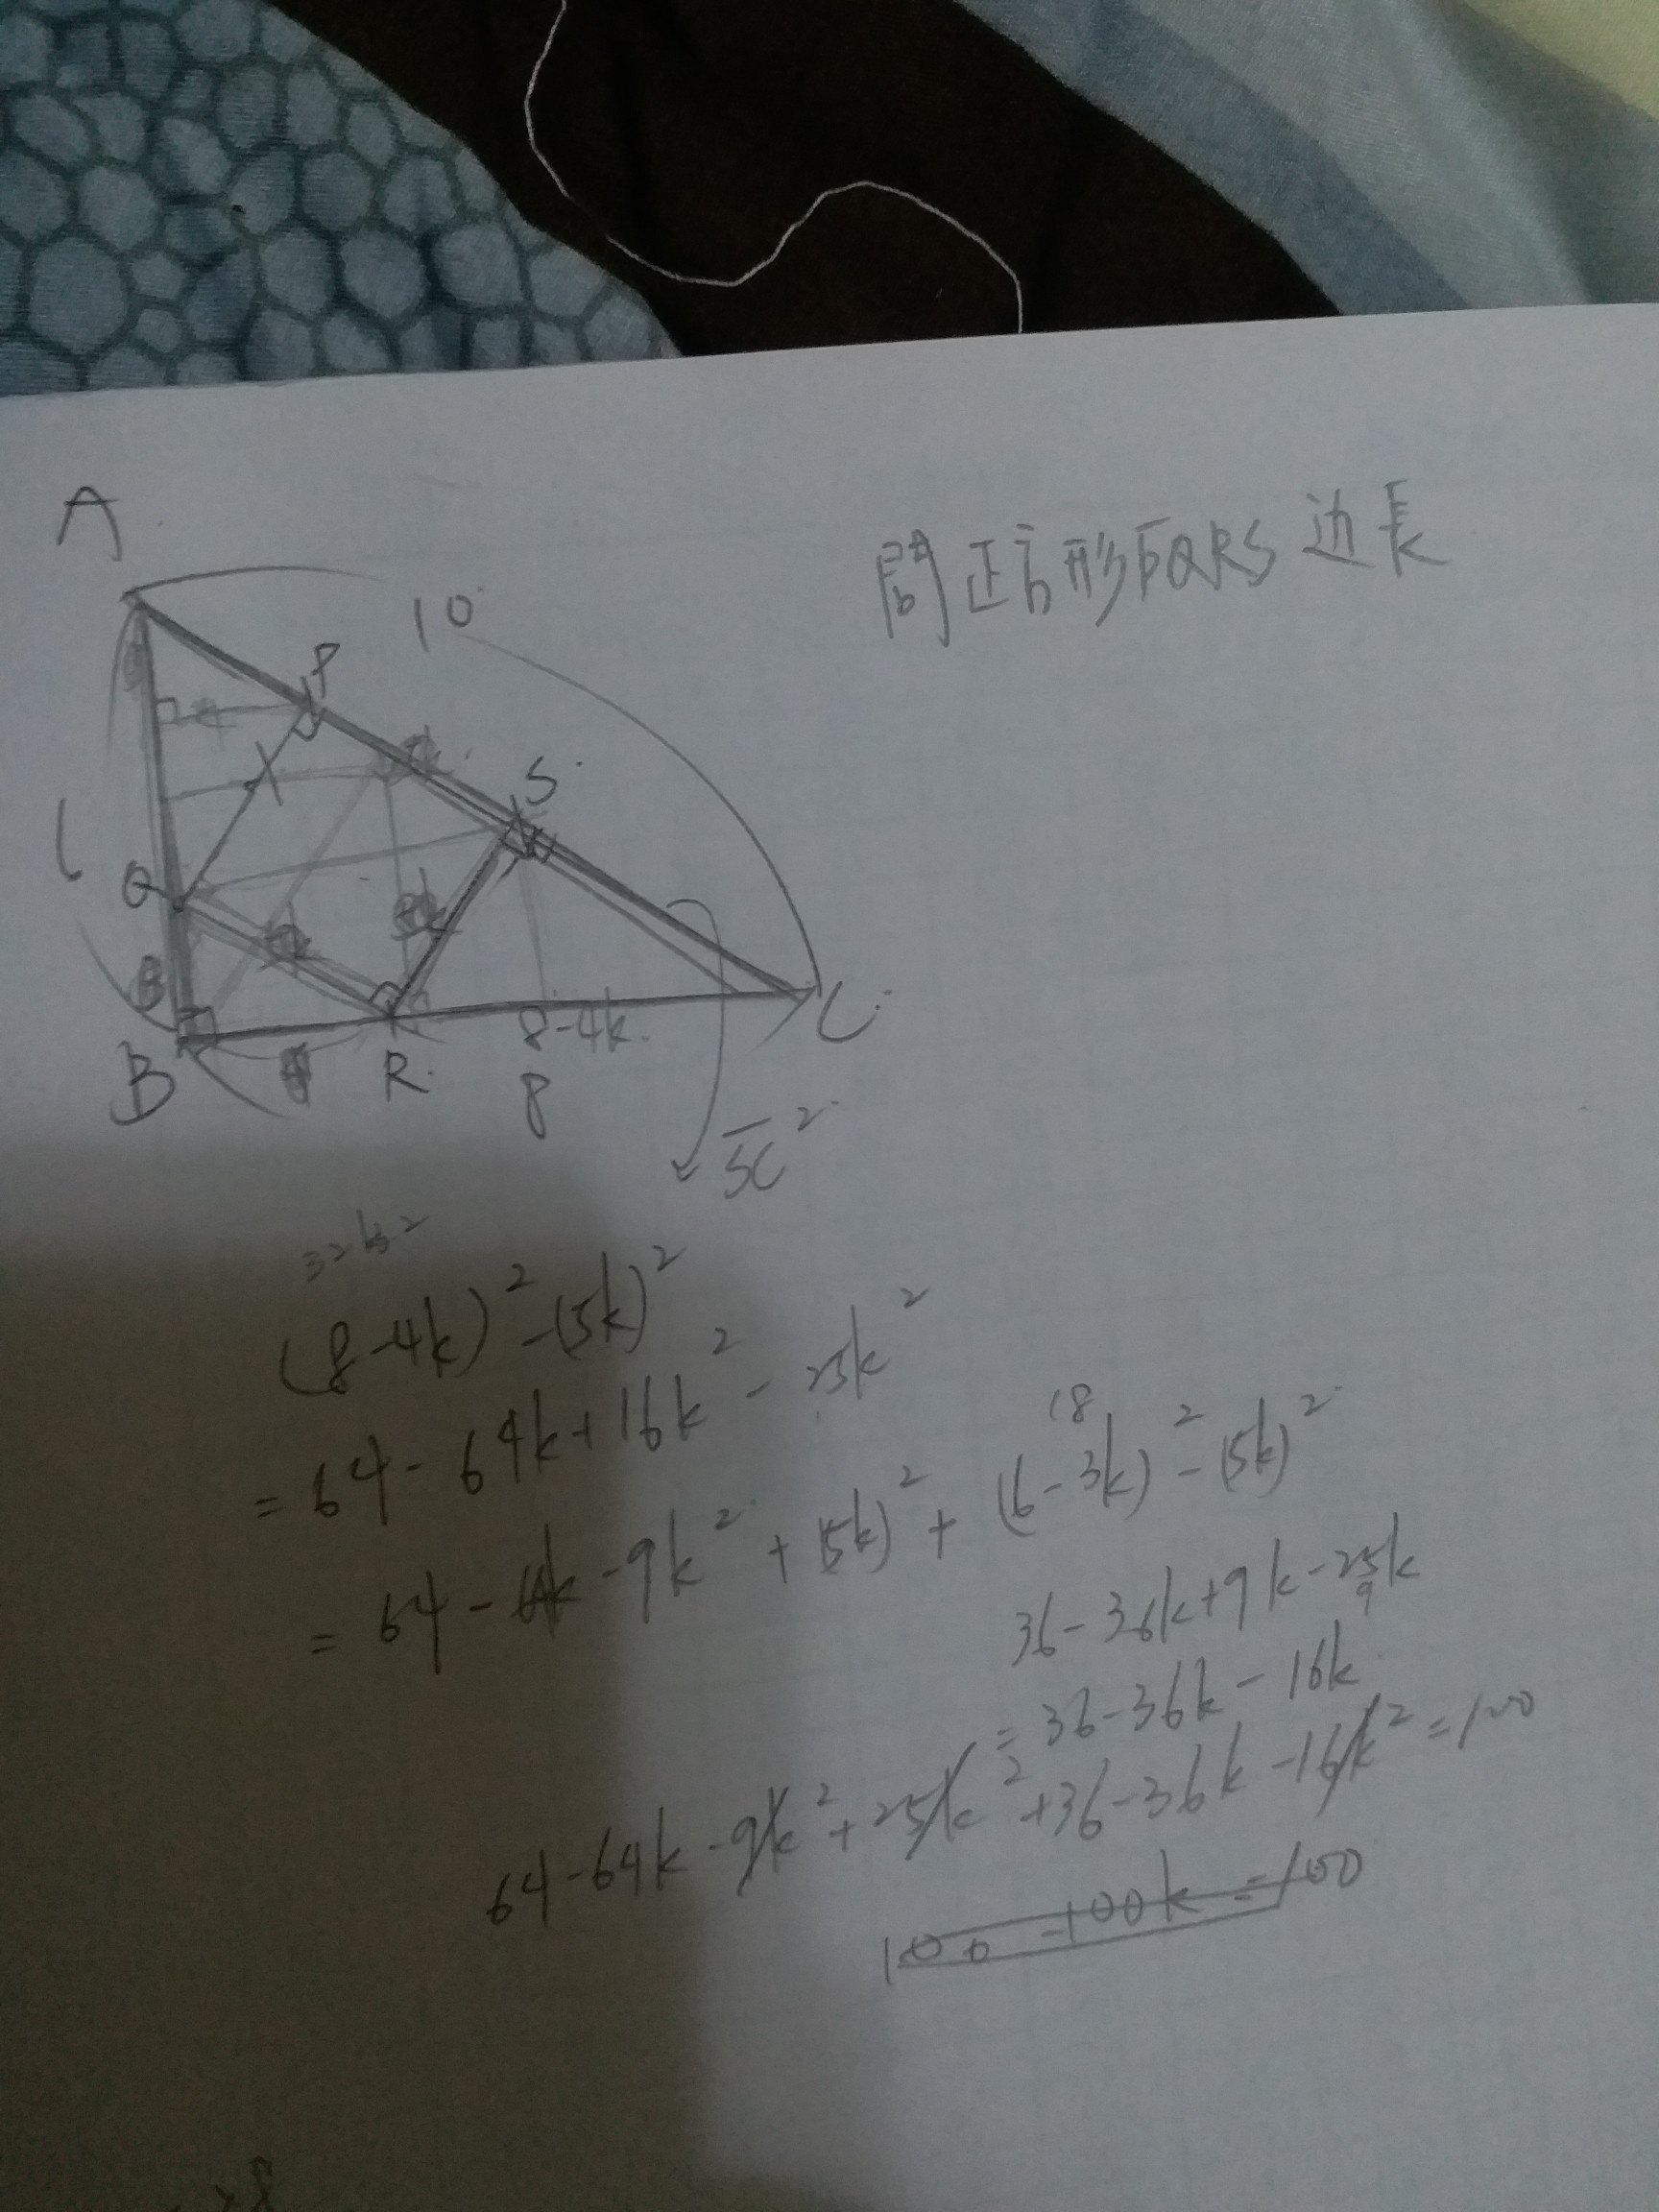 A
10
問正方形PQRS边長
P
S
Q
B
B
R
8-4k
8
C
SC²
(8-4k)²-(5k)²
=64-64k+16k²-25k²
18
=64-64k-9k²+(5k)²+(6-3k)²-(5k)²
36-36k+9k-25k
=36-36k-16k
64-64k-9k²+25k²+36-36k-16k²=100
100-100k=100